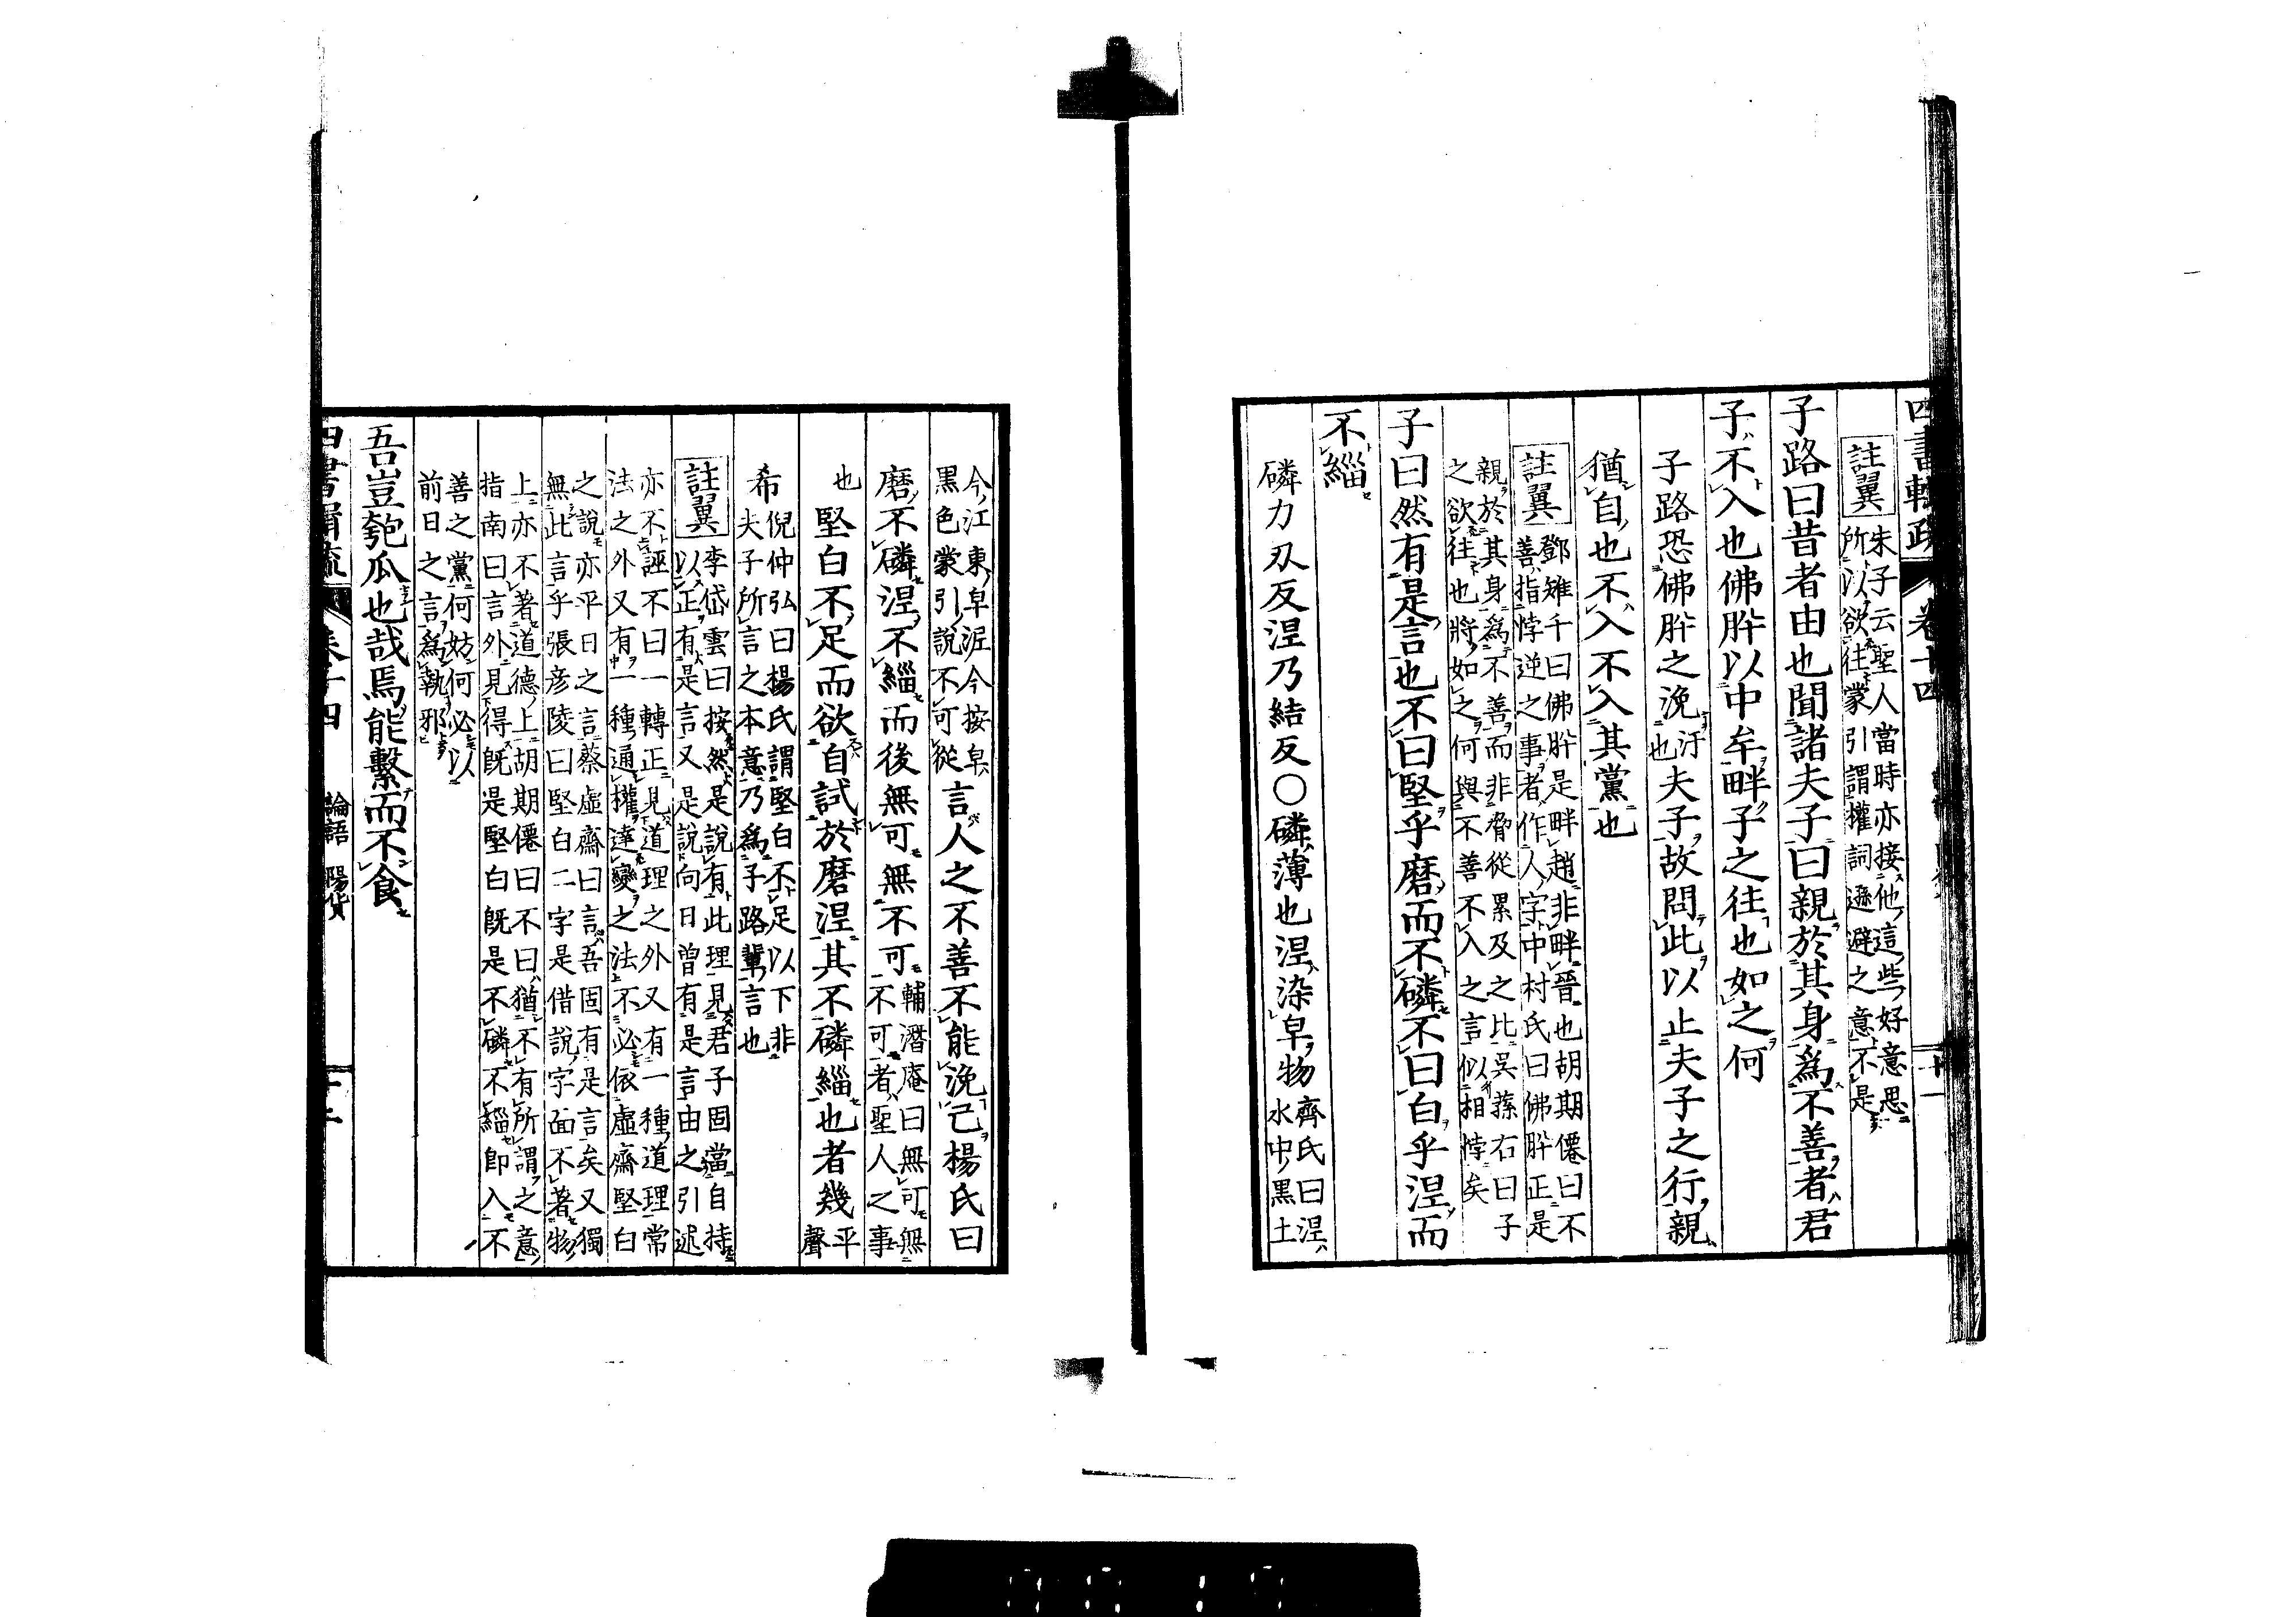 四書輯疏 卷十四 十一
註翼 朱子云聖人當時亦接他這些好意思
所以欲往蒙引謂權詞遜避之意不是
子路曰昔者由也聞諸夫子曰親於其身爲不善者君
子不入也佛肸以中牟畔子之往也如之何
子路恐佛肸之浼汙也夫子故問此以止夫子之行親
猶自也不入不入其黨也
註翼 鄧雉千曰佛肸是畔趙非畔晉也胡期僊曰不
善指悖逆之事者作人字中村氏曰佛肸正是
親於其身爲不善而非脅從累及之比吳蓀右曰子
之欲往也將如之何與不善不入之言似相悖矣
子曰然有是言也不曰堅乎磨而不磷不曰白乎涅而
不緇
磷力刃反涅乃結反○磷薄也涅染皁物齊氏曰涅
水中黑土
今江東皁泥今按皁
黑色蒙引說不可從言人之不善不能浼己楊氏曰
磨不磷涅不緇而後無可無不可輔潛庵曰無可無
不可者聖人之事
也堅白不足而欲自試於磨涅其不磷緇也者幾平
聲
希倪仲弘曰楊氏謂堅白不足以下非
夫子所言之本意乃爲子路輩言也
註翼 李岱雲曰按然是說有此理見君子固當自持
以正有是言又是說向日曾有是言由之引述
亦不誣不曰一轉正見道理之外又有一種道理常
法之外又有一種通權達變之法不必依虛齋堅白
之說亦平日之言蔡虛齋曰言吾固有是言矣又獨
無此言乎張彥陵曰堅白二字是借說字面不著物
上亦不著道德上胡期僊曰不曰猶不有所謂之意
指南曰言外見得既是堅白既是不磷不緇即入不
善之黨何妨何必以
前日之言爲執邪
吾豈匏瓜也哉焉能繫而不食
四書輯疏 卷十四 論語 陽貨 十二